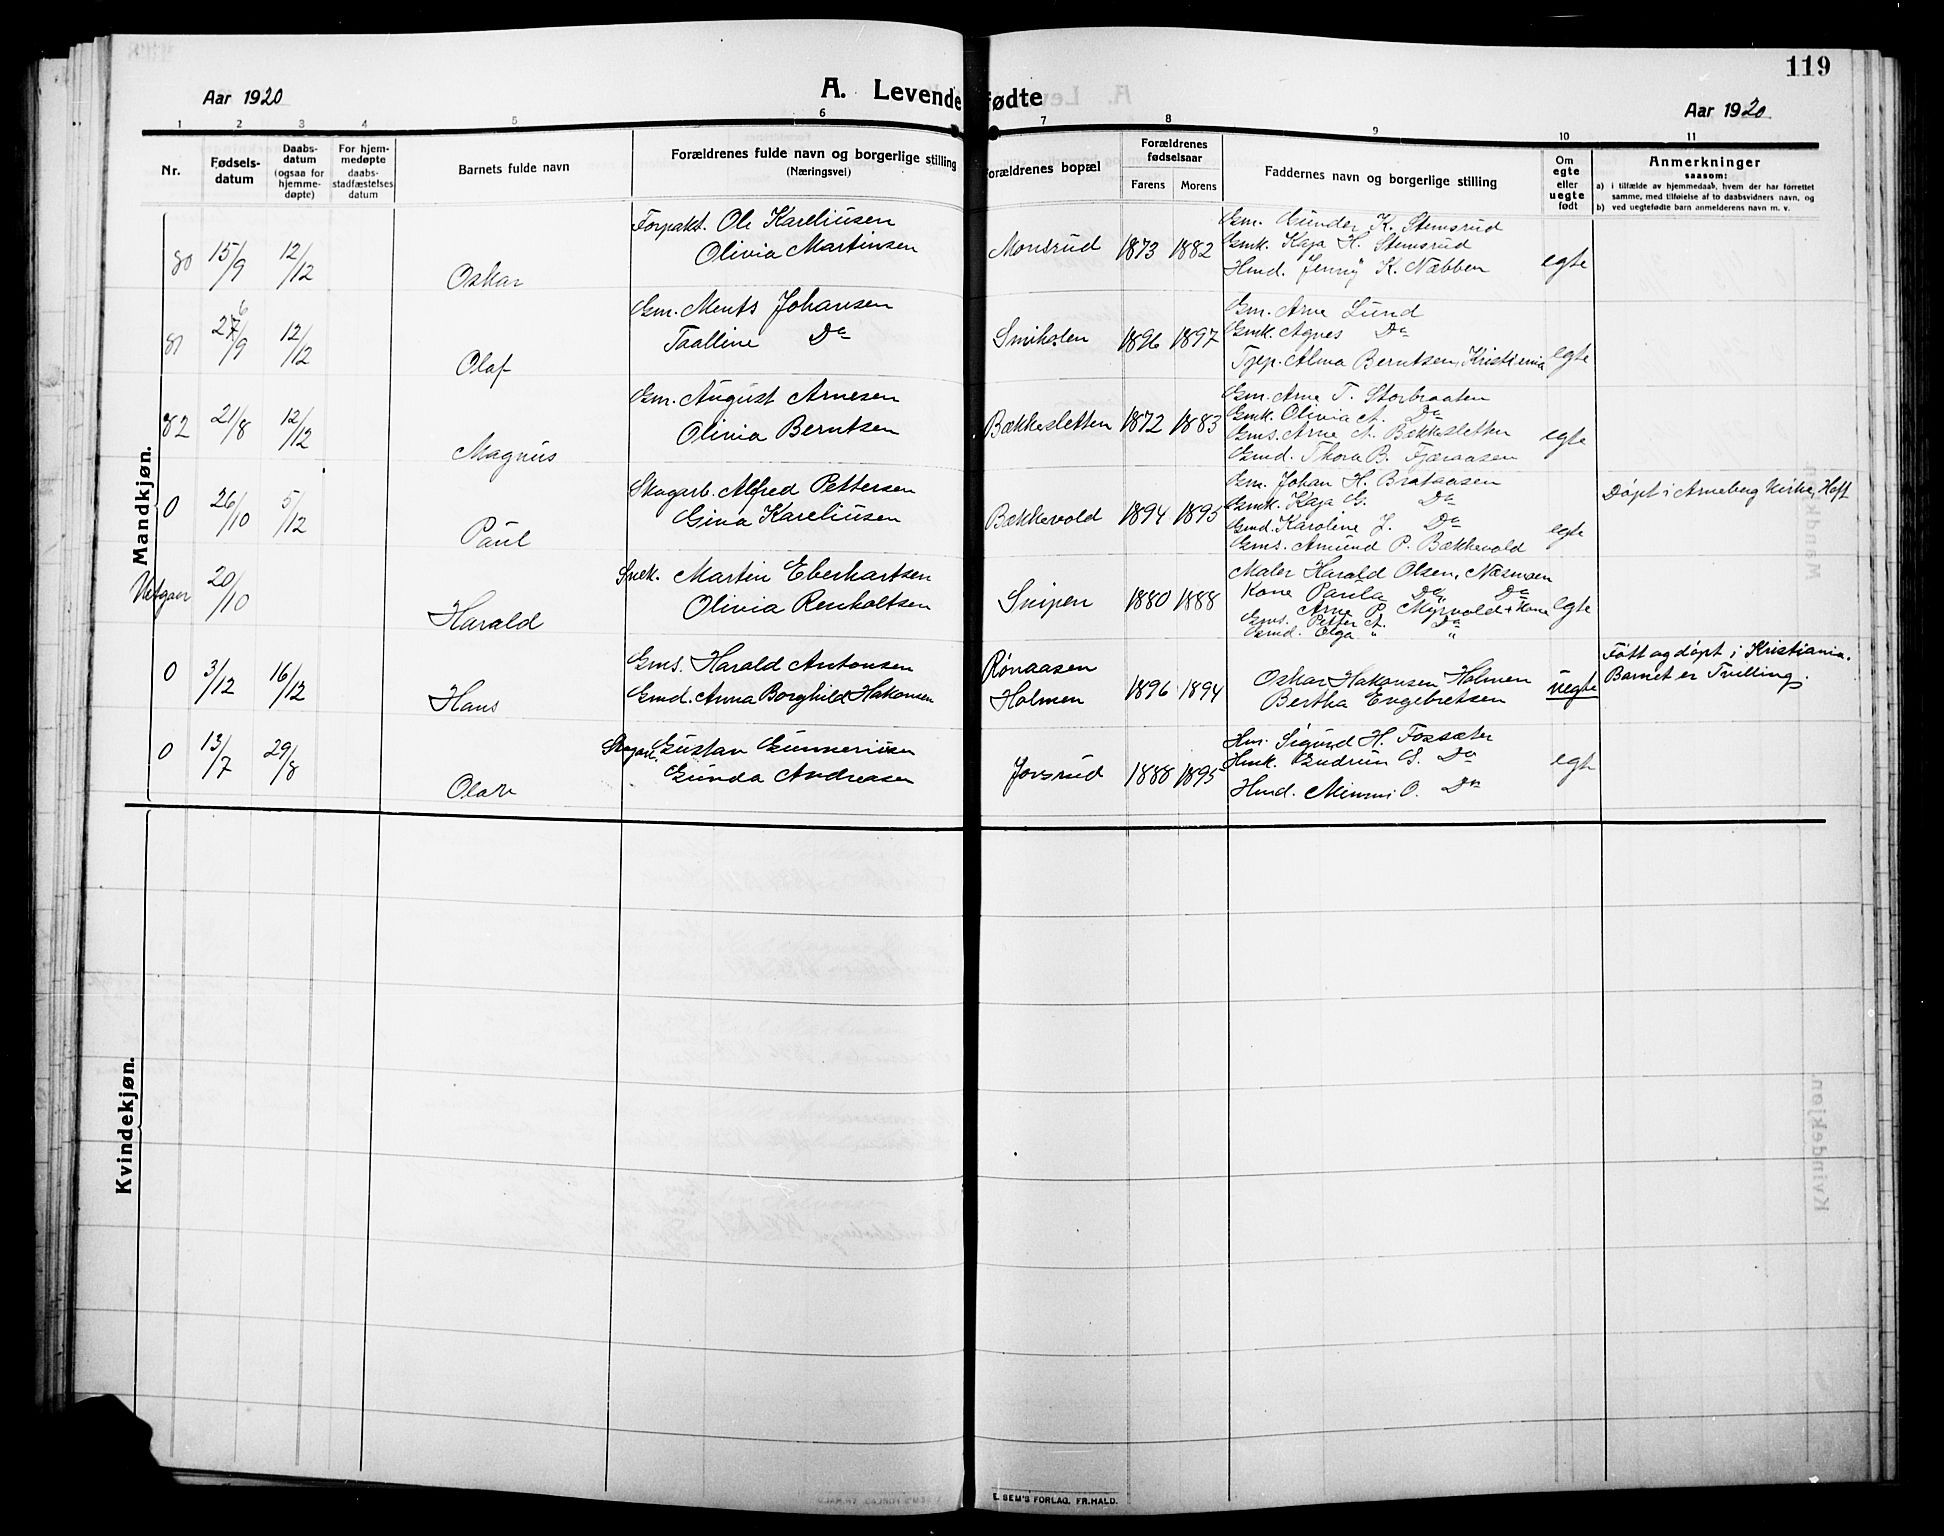 119
Aar 1920
A. Levende fødte
Aar 1920
1 2 3 4 5 6 7 8 9 10 11
Nr.
Fødsels-
datum
Daabs-
datum
(ogsaa for
hjemme-
døpte)
For hjem-
medøpte
daabs-
stadfæstelses
datum
Barnets fulde navn
Forældrenes fulde navn og borgerlige stilling
(Næringsvei)
Forældrenes bopæl
Forældrenes
fødselsaar
Farens Morens
Faddernes navn og borgerlige stilling
Om
egte
eller
uegte
født
Anmerkninger
saasom:
a) i tilfælde av hjemmedaab, hvem der har forrettet
samme, med tilføielse af to daabsvidners navn, og
b) ved uegtefødte barn anmelderens navn m. v.
Mandkjøn.
80 15/9 12/12 Oskar
Forpakt. Ole Kareliusen
Olivia Martinsen
Monsrud 1873 1882
Gm. Gunder K. Stemsrud
Gmk. Kaja H. Stemsrud
Hmd. Jenny K. Næbben
egte
81 26/9 12/12 Olaf
Gm. Ments Johansen
Taalline Do
Smiholen 1896 1897
Gm. Arne Lund
Gmk. Agnes Do
Tjep. Alma Berntsen, Kristiania
egte
82 21/8 12/12 Magnus
Gm. August Arnesen
Olivia Berntsen
Bækkesletten 1872 1883
Gm. Arne T. Storbraaten
Gmk. Olivia A. Do
Gms. Arne A. Bækkesletten
Gmd. Thora B. Fjæraasen
egte
0 26/10 5/12 Paul
Skogarb. Alfred Pettersen
Gina Kareliusen
Bækkevold 1894 1895
Gm. Johan H. Brataasen
Gmk. Kaja G. Do
Gmd. Karoline J. Do
Gms. Amund P. Bækkevold
egte
Døpt i Arneberg Kirke, Hoff
Utgaar 20/10 Harald
Snek. Martin Eberhartsen
Olivia Renholtsen
Snipen 1880 1888
Maler Harald Olsen, Næsmoen
Kone Paula Do Do
Arne P. Myrvold + Kone
Gms. Petter A. Do
Gmd. Olga " "
egte
0 3/12 16/12 Hans
Gms. Harald Antonsen
Gmd. Anna Borghild Hakonsen
Rønaasen
Holmen 1896 1894
Oskar Hakonsen Holmen
Bertha Engebretsen
uegte
Født og døpt i Kristiania.
Barnet er Tvilling.
0 13/7 29/8 Olav
Skogarb. Gustav Gunneriusen
Gunda Andreasen
Jovsrud 1888 1895
Hm. Sigurd H. Fossæter
Hmk. Gudrun S. Do
Hmd. Mimmi O. Do
egte
Kvindekjøn.
E. SEM'S FORLAG, FR.HALD.